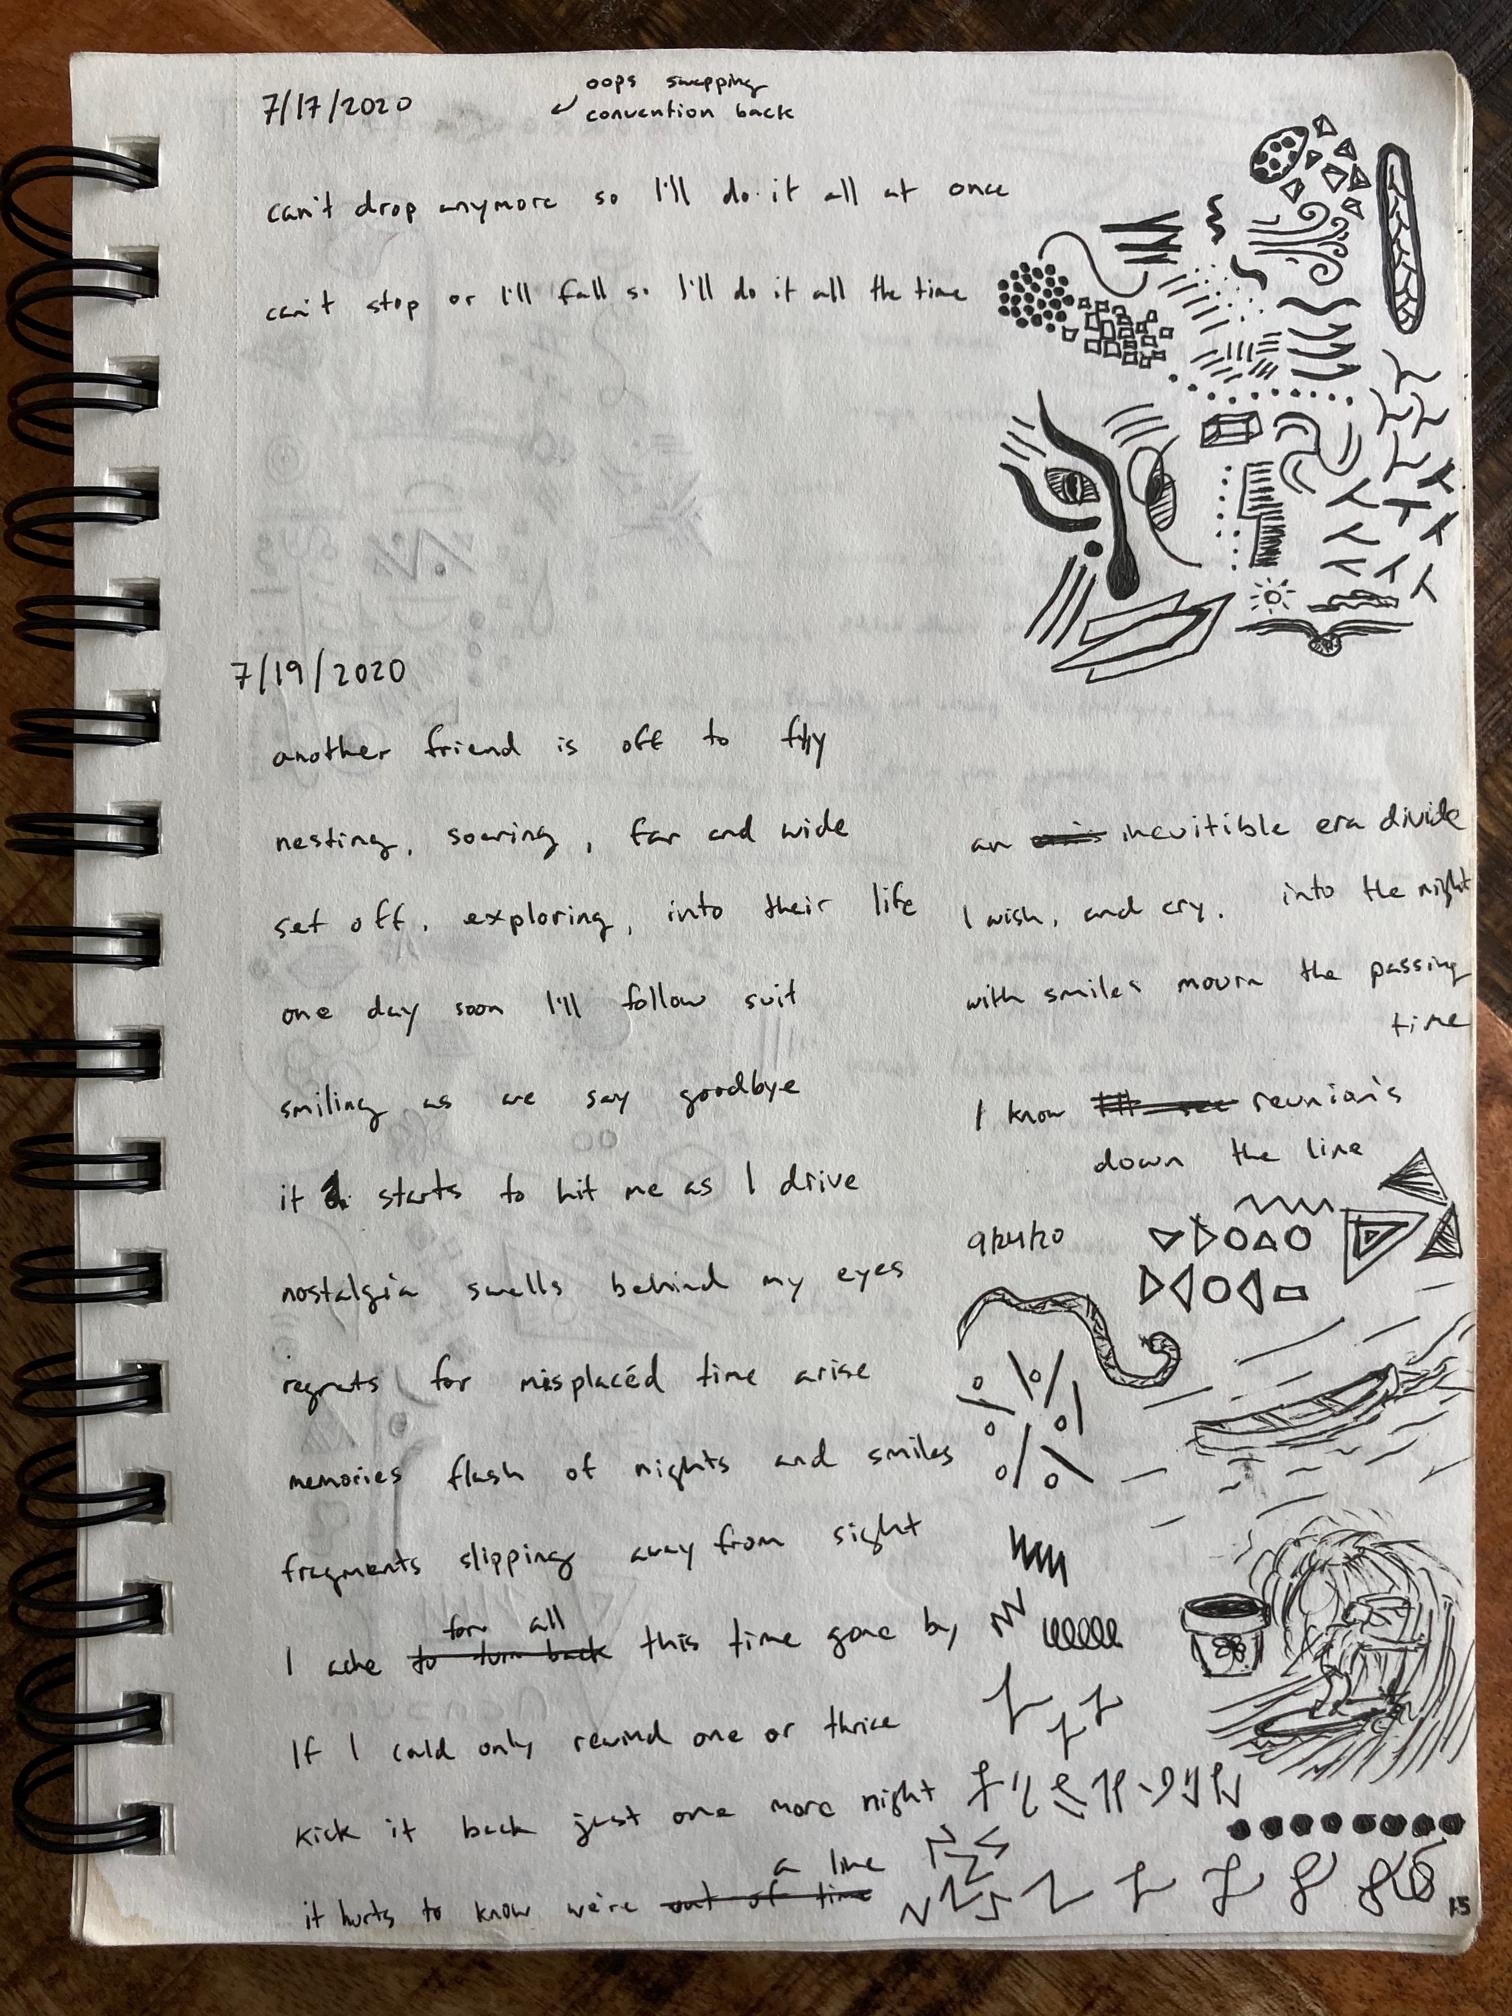 7/17/2020
oops swapping
convention back
can't drop anymore so I'll do it all at once
can't stop or I'll fall so I'll do it all the time
7/19/2020
another friend is off to fly
nesting, soaring, far and wide
set off, exploring, into their life
one day soon I'll follow suit
smiling as we say goodbye
it starts to hit me as I drive
nostalgia swells behind my eyes
regrets for misplaced time arise
memories flash of nights and smiles
fragments slipping away from sight
for all
I ache to turn back this time gone by
If I could only rewind one or thrice
kick it back just one more night
a line
it hurts to know we're out of time
an inevitible era divide
I wish, and cry. into the night
with smiles mourn the passing
time
I know reunion's
down the line
15